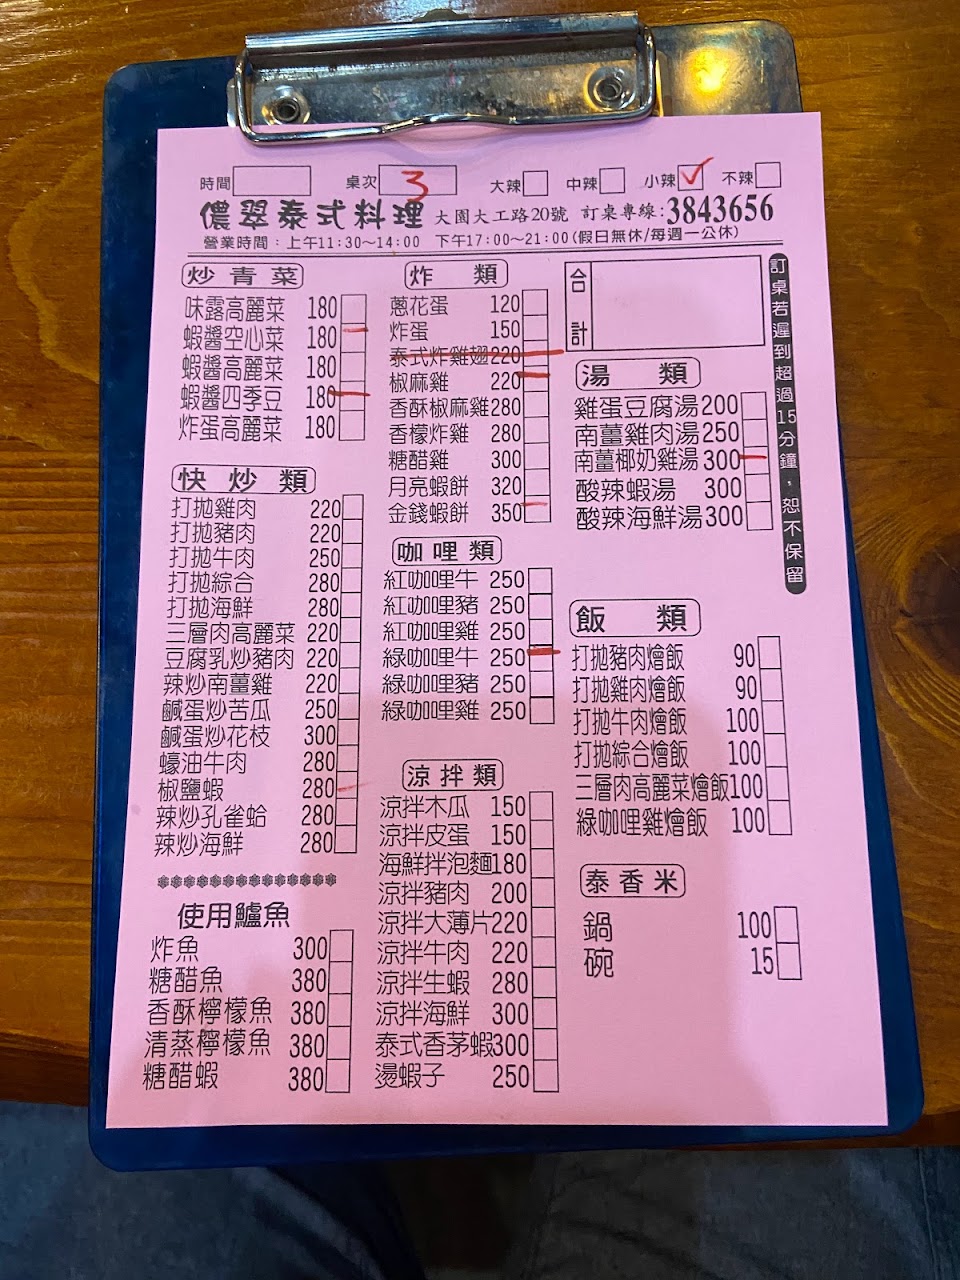 時間 桌次 3 大辣 中辣 小辣 ✓ 不辣
儂翠泰式料理 大園大工路20號 訂桌專線:3843656
營業時間：上午11:30～14:00 下午17:00～21:00(假日無休/每週一公休)
炒青菜
味露高麗菜 180
蝦醬空心菜 180
蝦醬高麗菜 180
蝦醬四季豆 180
炸蛋高麗菜 180
快炒類
打拋雞肉 220
打拋豬肉 220
打拋牛肉 250
打拋綜合 280
打拋海鮮 280
三層肉高麗菜 220
豆腐乳炒豬肉 220
辣炒南薑雞 220
鹹蛋炒苦瓜 250
鹹蛋炒花枝 300
蠔油牛肉 280
椒鹽蝦 280
辣炒孔雀蛤 280
辣炒海鮮 280
使用鱸魚
炸魚 300
糖醋魚 380
香酥檸檬魚 380
清蒸檸檬魚 380
糖醋蝦 380
炸類
蔥花蛋 120
炸蛋 150
泰式炸雞翅 220
椒麻雞 220
香酥椒麻雞 280
香檬炸雞 280
糖醋雞 300
月亮蝦餅 320
金錢蝦餅 350
咖哩類
紅咖哩牛 250
紅咖哩豬 250
紅咖哩雞 250
綠咖哩牛 250
綠咖哩豬 250
綠咖哩雞 250
涼拌類
涼拌木瓜 150
涼拌皮蛋 150
海鮮拌泡麵 180
涼拌豬肉 200
涼拌大薄片 220
涼拌牛肉 220
涼拌生蝦 280
涼拌海鮮 300
泰式香茅蝦 300
燙蝦子 250
合計
湯類
雞蛋豆腐湯 200
南薑雞肉湯 250
南薑椰奶雞湯 300
酸辣蝦湯 300
酸辣海鮮湯 300
飯類
打拋豬肉燴飯 90
打拋雞肉燴飯 90
打拋牛肉燴飯 100
打拋綜合燴飯 100
三層肉高麗菜燴飯 100
綠咖哩雞燴飯 100
泰香米
鍋 100
碗 15
訂桌若遲到超過15分鐘，恕不保留